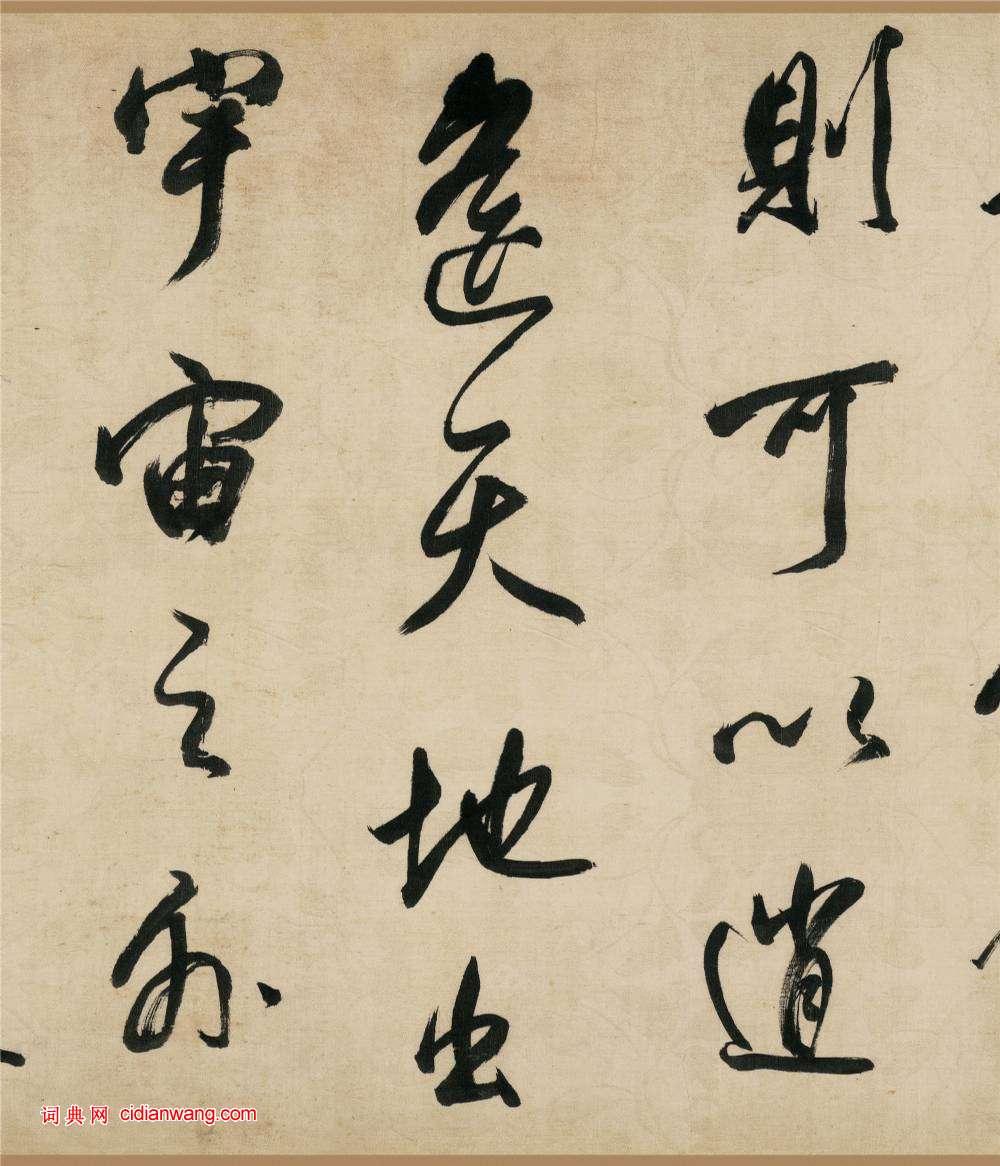 則可以逍
遙天地出
宇宙之外
词典网 cidianwang.com